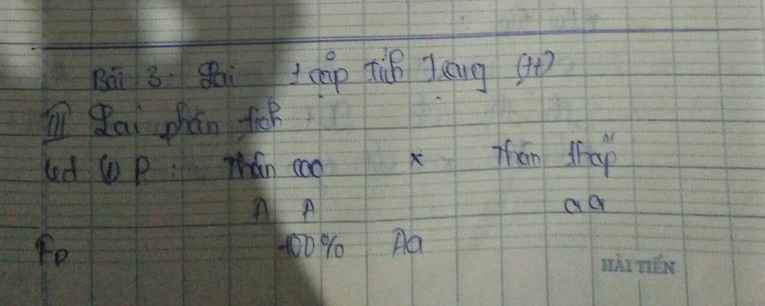 Bài 3. Lai 1 cặp tính trạng (tt)
III Lai phân tích
Vd (1) P: Thân cao x Thân thấp
A A aa
FD 100% Aa
HẢI TIẾN